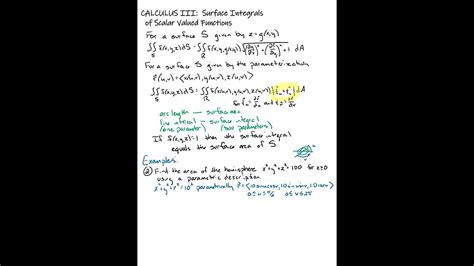 CALCULUS III: Surface Integrals
of Scalar Valued Functions
For a surface S given by z=g(x,y)
∬_S f(x,y,z)dS = ∬_R f(x,y,g(x,y)) √((∂g/∂x)²+(∂g/∂y)²+1) dA
For a surface S given by the parameterization
r(u,v) = ⟨x(u,v), y(u,v), z(u,v)⟩
∬_S f(x,y,z)dS = ∬_R f(x(u,v), y(u,v), z(u,v)) |r_u × r_v| dA
for r_u = ∂r/∂u and r_v = ∂r/∂v
arc length – surface area
line integral – surface integral
(one parameter) (two parameters)
If f(x,y,z)=1 then the surface integral
equals the surface area of S
Examples:
② Find the area of the hemisphere x²+y²+z²=100 for z≥0
using a parametric description.
x²+y²+z²=10² parametrically r=⟨10 sinu cosv, 10 sinu sinv, 10 cosu⟩